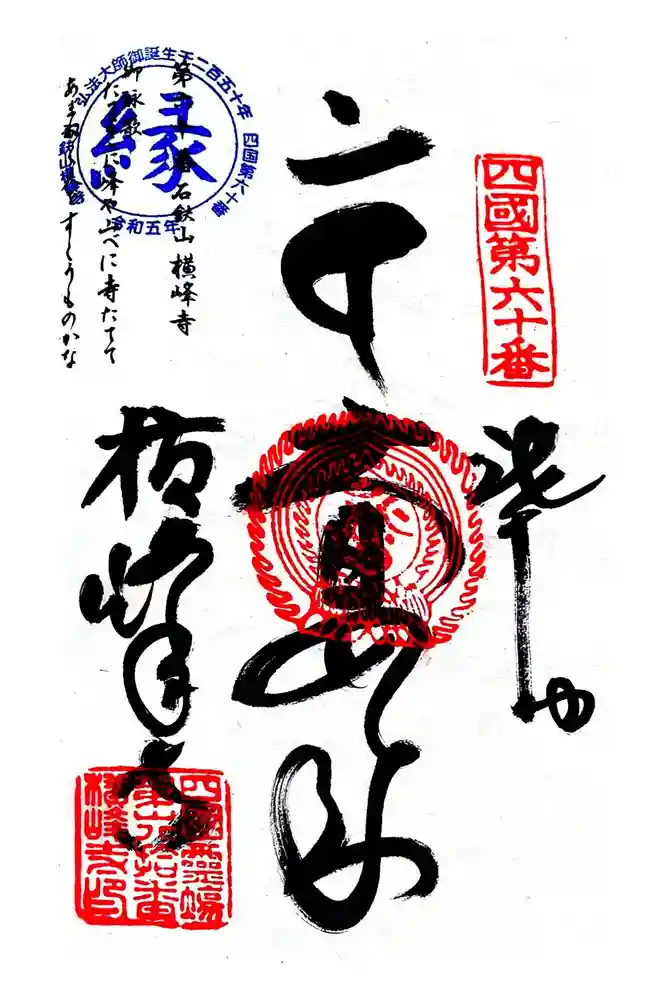 四國第六十番
大日如来
横峰寺
弘法大師御誕生千二百五十年
四国第六十番
縁
令和五年
第六十番石鈇山横峰寺
御詠歌
たてよこに峰や山べに寺たてて
あまねく すくうものかな
四國霊場
第六拾番
横峰寺印